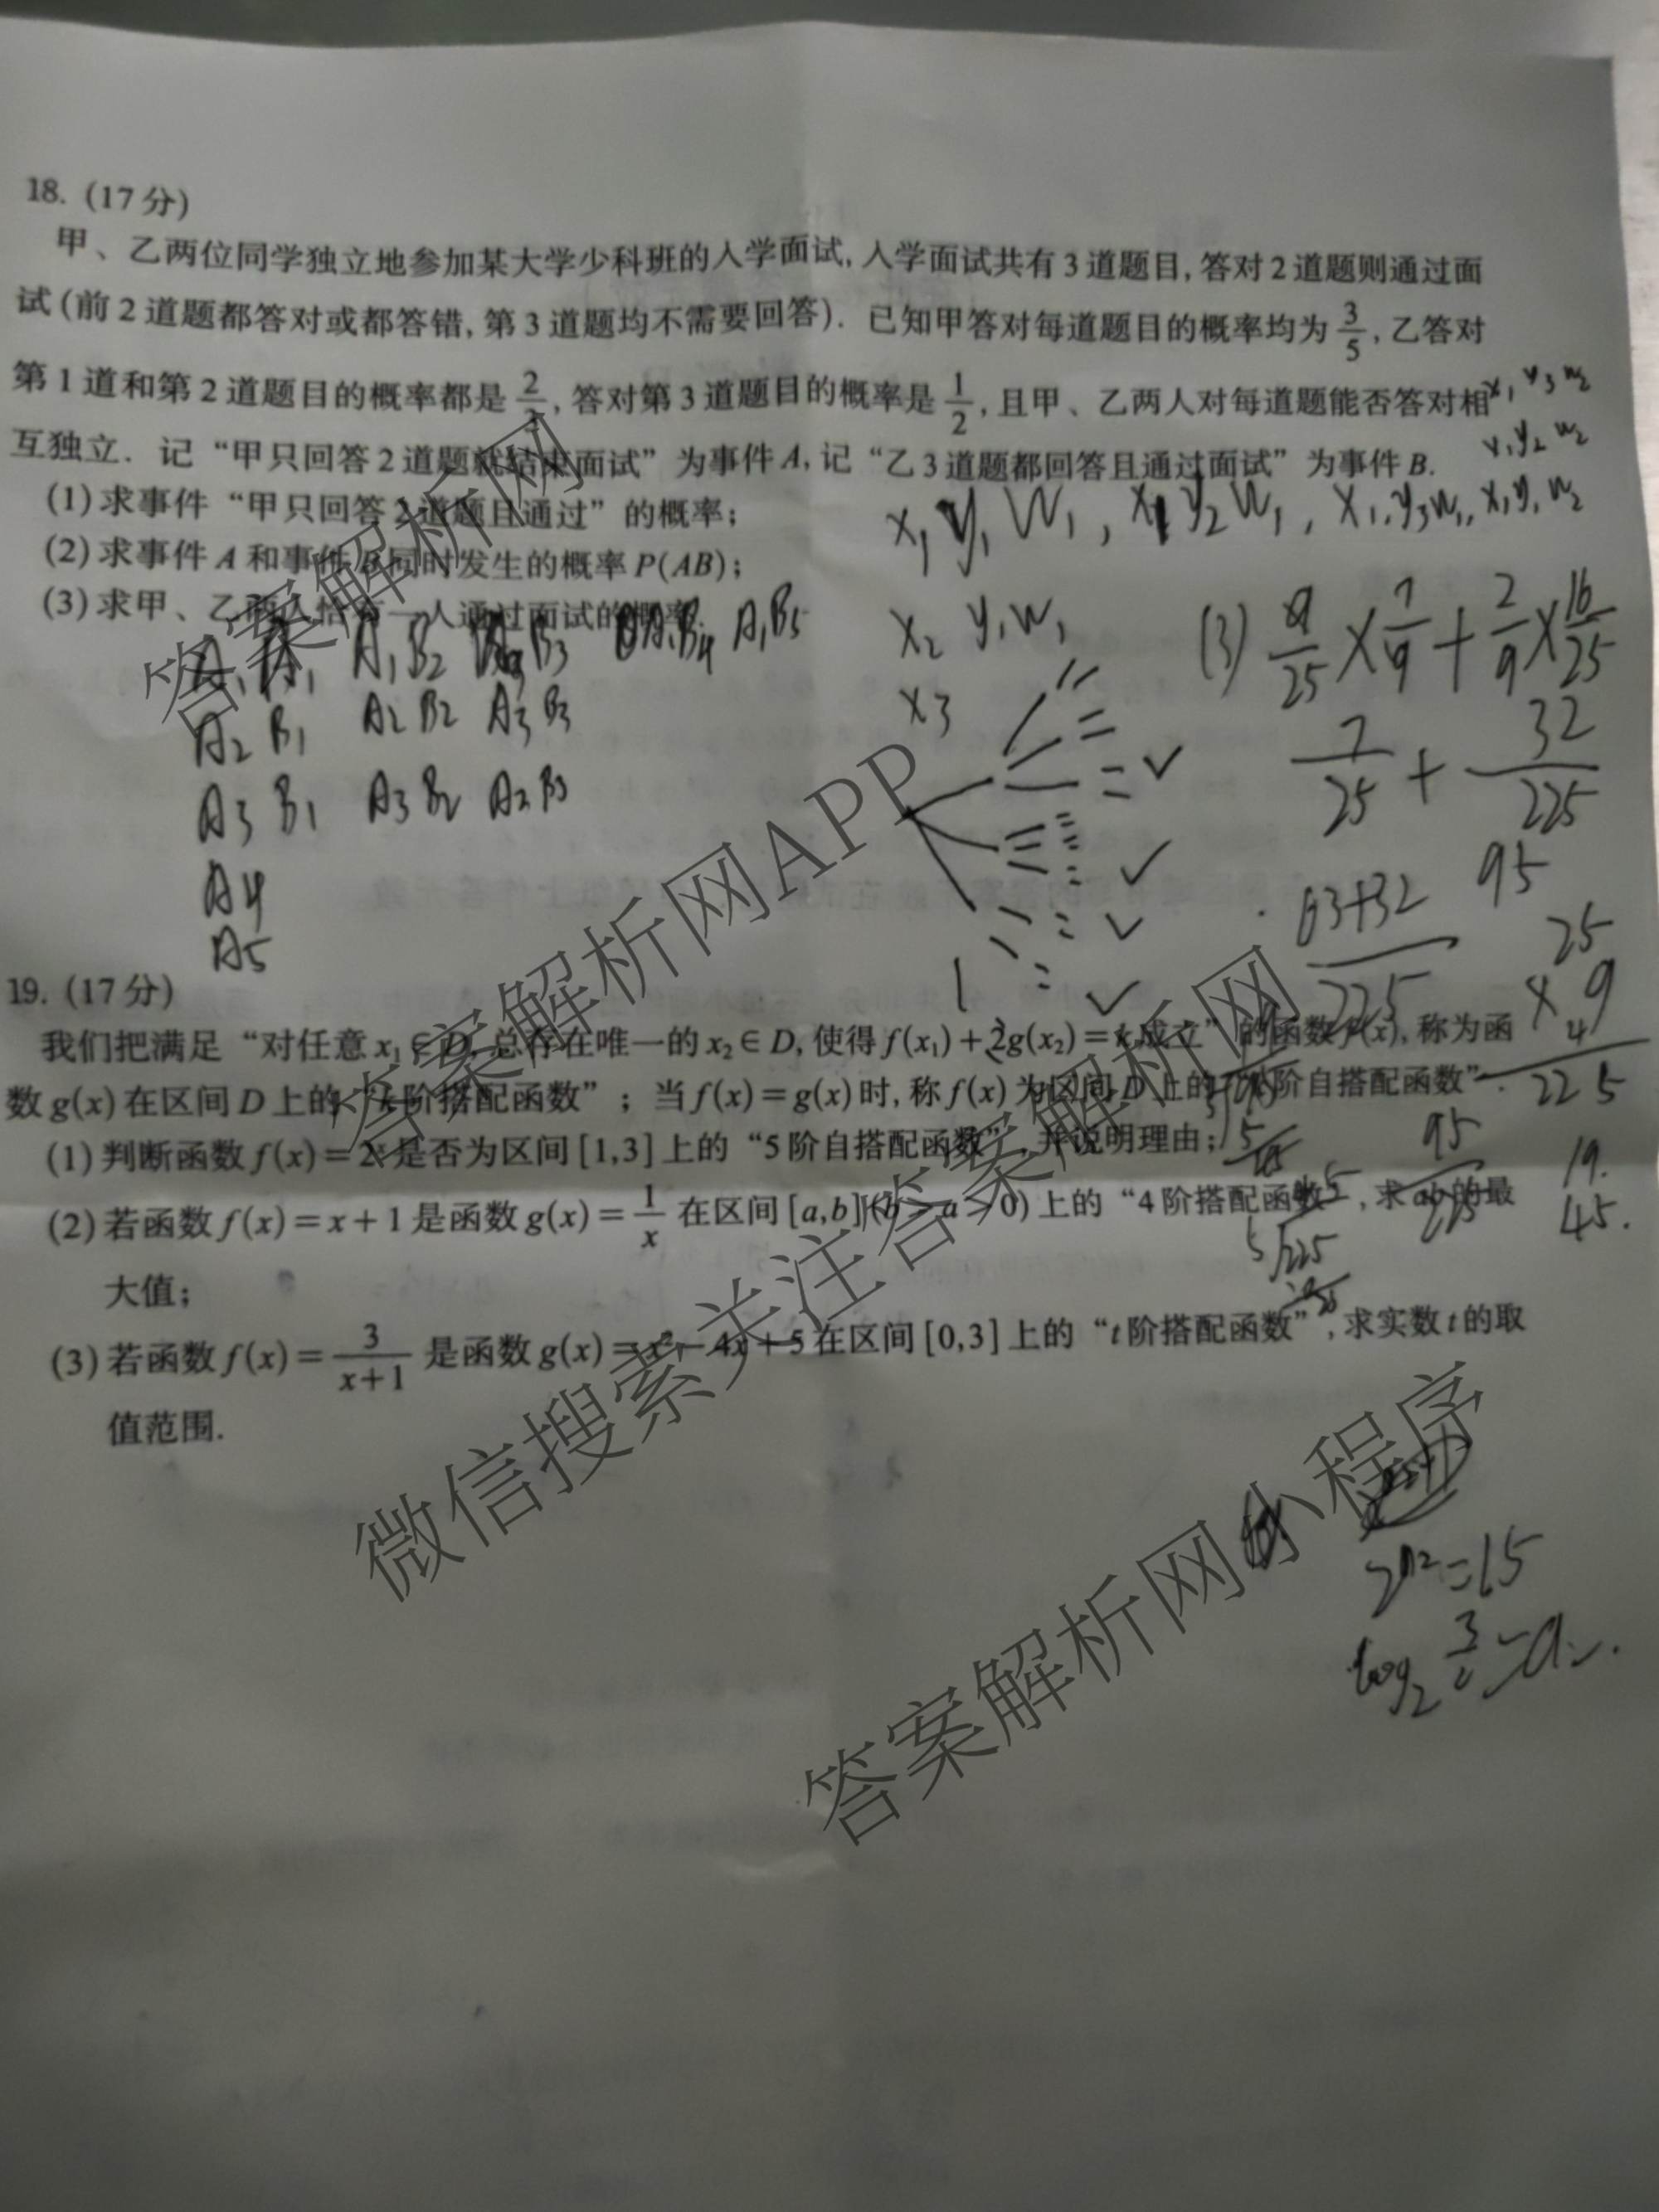 18. (17分)
甲、乙两位同学独立地参加某大学少科班的入学面试,入学面试共有3道题目,答对2道题则通过面
试(前2道题都答对或都答错,第3道题均不需要回答). 已知甲答对每道题目的概率均为3/5,乙答对
第1道和第2道题目的概率都是2/3,答对第3道题目的概率是1/2,且甲、乙两人对每道题能否答对相
x₁ y₃ w₂
互独立. 记“甲只回答2道题就结束面试”为事件A,记“乙3道题都回答且通过面试”为事件B.
x₁ y₂ w₂
(1)求事件“甲只回答2道题且通过”的概率;
x₁ y₁ w₁, x₁ y₂ w₁, x₁ y₃ w₁, x₁ y₁ w₂
(2)求事件A和事件B同时发生的概率P(AB);
(3)求甲、乙两人恰有一人通过面试的概率.
A₁B₂ B₃ A₁B₄ A₁B₅
x₂ y₁ w₁
(3) 9/25 × 7/9 + 2/9 × 16/25
A₂ B₁ A₂ B₂ A₃ B₃
x₃
7/25 + 32/225
A₃ B₁ A₃ B₂ A₂ B₃
A₄
63+32/225
95
A₅
25
× 9
225
19. (17分)
我们把满足“对任意x₁∈D,总存在唯一的x₂∈D,使得f(x₁)+2g(x₂)=k成立”的函数f(x),称为函
数g(x)在区间D上的“k阶搭配函数”;当f(x)=g(x)时,称f(x)为区间D上的“k阶自搭配函数”.
(1)判断函数f(x)=2ˣ是否为区间[1,3]上的“5阶自搭配函数”,并说明理由;
95/225
19
45.
(2)若函数f(x)=x+1是函数g(x)=1/x在区间[a,b](b>a>0)上的“4阶搭配函数”,求ab的最
5 225
大值;
(3)若函数f(x)=3/(x+1)是函数g(x)=x²-4x+5在区间[0,3]上的“t阶搭配函数”,求实数t的取
值范围.
答案解析网
答案解析网APP
微信搜索关注答案解析网
答案解析网小程序